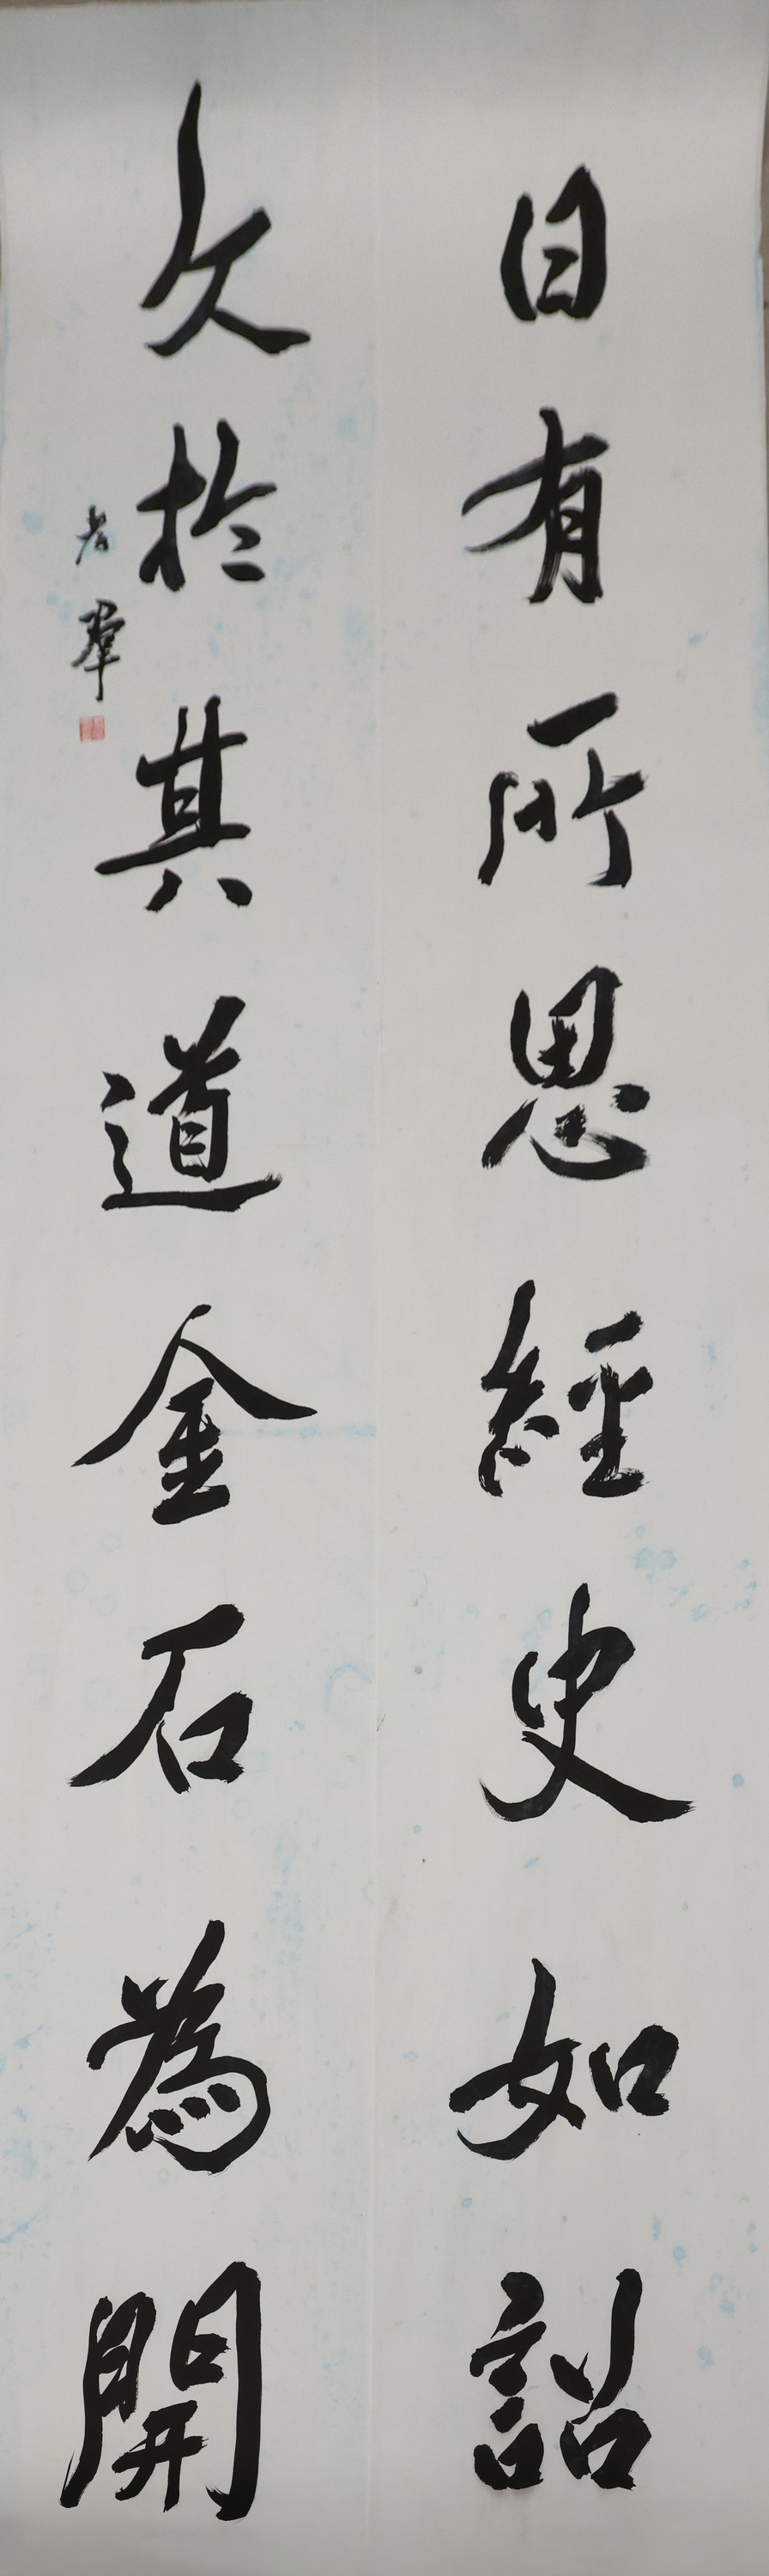 日有所思經史如詔
久於其道金石為開